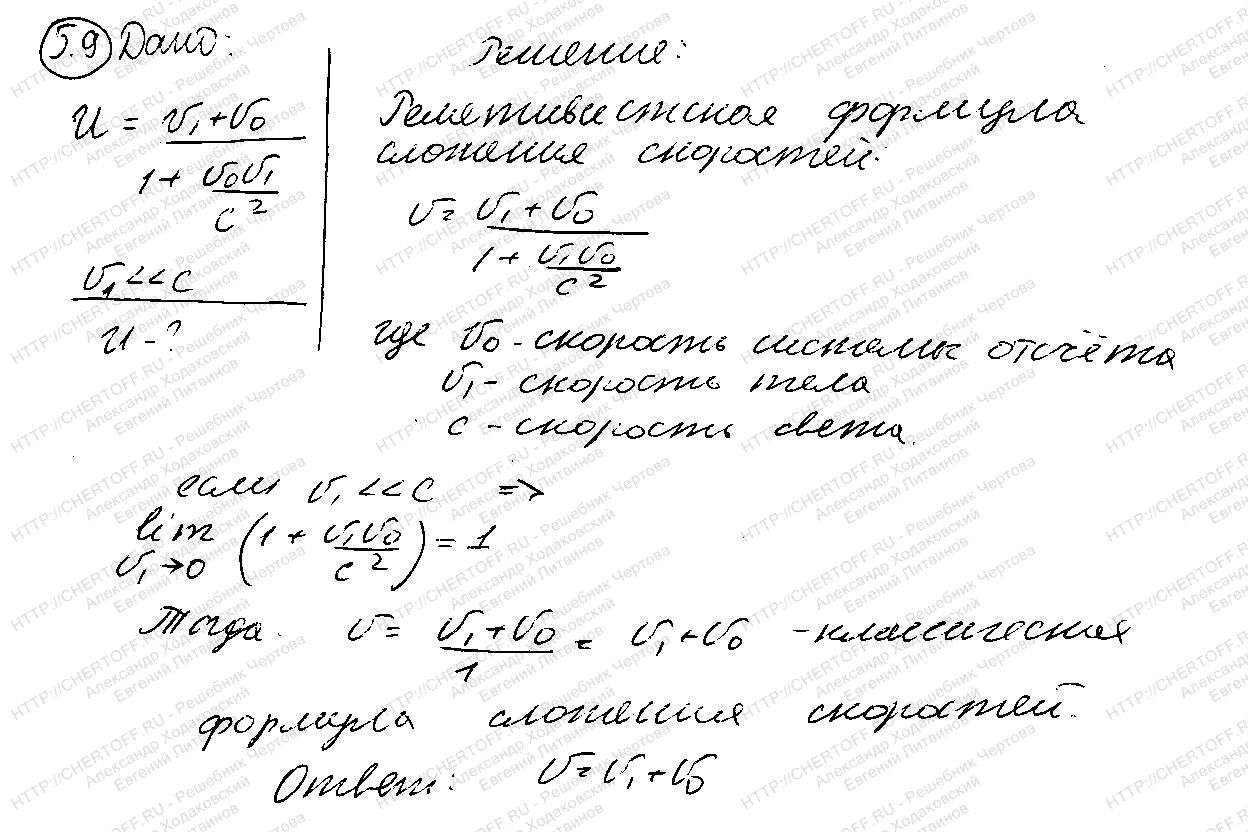 5.9 Дано:
u = (υ₁+υ₀) / (1 + υ₀υ₁/c²)
υ₁ << c
u - ?
Решение:
Релятивистская формула
сложения скоростей:
υ = (υ₁ + υ₀) / (1 + υ₁υ₀/c²)
где υ₀ - скорость системы отсчёта
υ₁ - скорость тела
c - скорость света.
если υ₁ << c =>
lim υ₁→0 (1 + υ₁υ₀/c²) = 1
Тогда υ = (υ₁+υ₀)/1 = υ₁+υ₀ - классическая
формула сложения скоростей.
Ответ: υ = υ₁+υ₀
HTTP://CHERTOFF.RU - Решебник Чертова
Александр Ходаковский
Евгений Литвинов